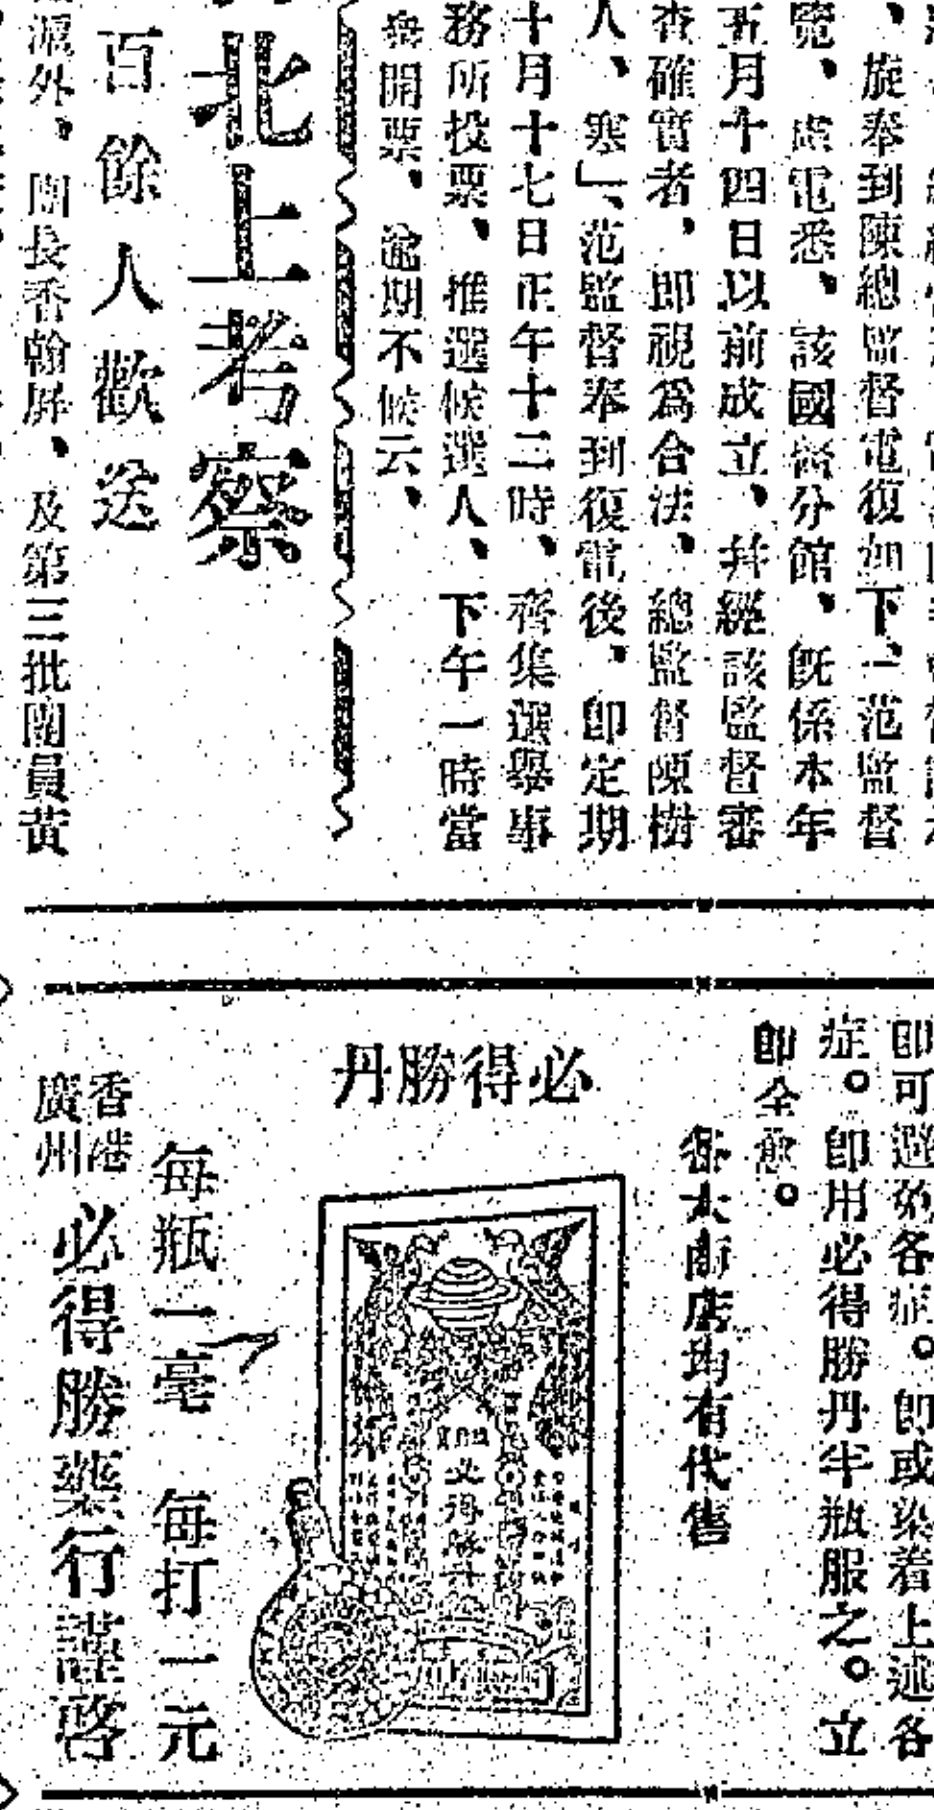 、旋奉到陳總監督電復如下、范監督
覽、電悉、該國醫分館、旣係本年
五月十四日以前成立、幷經該監督審
查確實者、卽視爲合法、總監督陳樹
人、寒」、范監督奉到復電後、卽定期
十月十七日正午十二時、齊集選舉事
務所投票、推選候選人、下午一時當
衆開票、逾期不候云、
北上考察
百餘人歡送
滬外、團長香翰屏、及第三批團員黃
卽可避免各症。卽或染着上述各
症。卽用必得勝丹半瓶服之。立
卽全愈。
各大商店均有代售
必得勝丹
必得勝丹
每瓶一毫 每打一元
香港
廣州
必得勝藥行謹啓